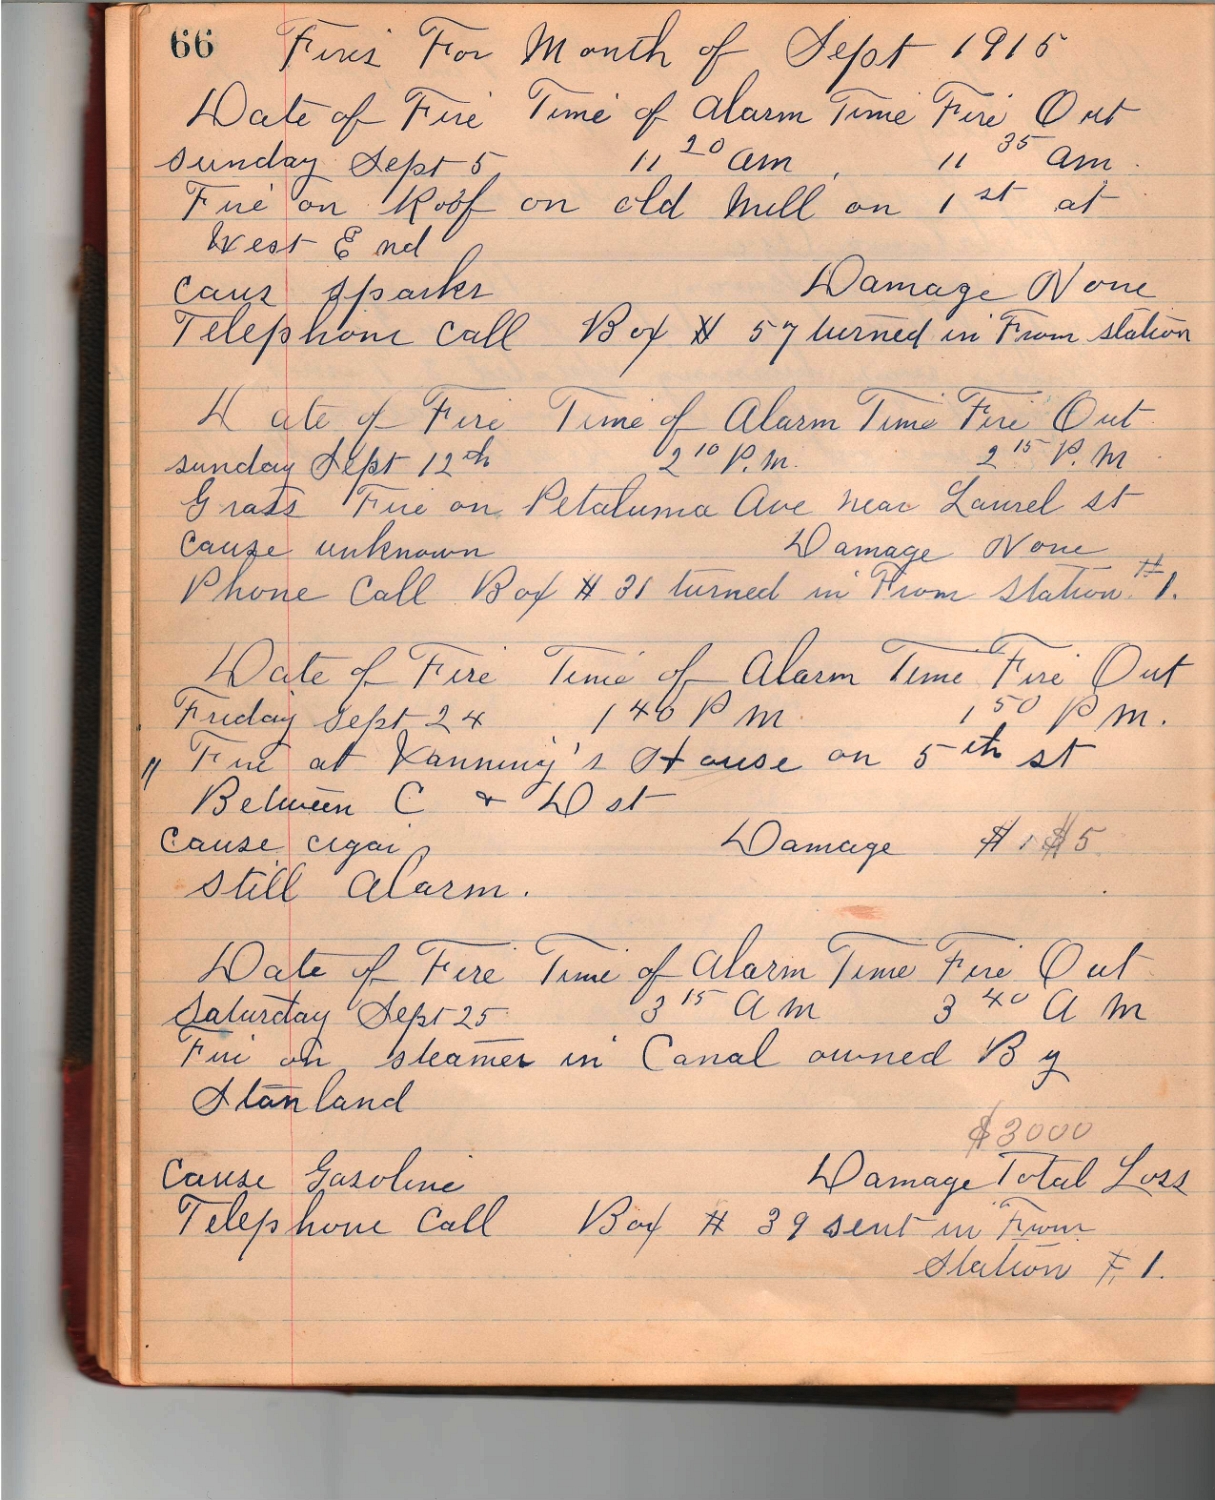 66 Fires For Month of Sept 1915
Date of Fire Time of Alarm Time Fire Out
Sunday Sept 5 11 20 am 11 35 am.
Fire on Roof on old Mill on 1st at
West End
Caus Sparks Damage None
Telephone Call Box # 57 turned in From Station
Date of Fire Time of Alarm Time Fire Out
Sunday Sept 12th 2 10 P.M. 2 15 P.M
Grass Fire on Petaluma Ave near Laurel st
Cause unknown Damage None
Phone Call Box # 31 turned in From Station #1.
Date of Fire Time of Alarm Time Fire Out
Friday Sept 24 1 40 P M 1 50 P M.
" Fire at House on 5th st
Between C & D st
Cause cigar Damage $ $5
Still Alarm.
Date of Fire Time of Alarm Time Fire Out
Saturday Sept 25 3 15 A M 3 40 A M
Fire on steamer in Canal owned By
Stanland
$3000
Cause Gasoline Damage Total Loss
Telephone Call Box # 39 sent in From
Station #1.